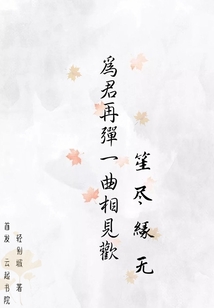 笙尽缘无
為君再彈一曲相見歡
轻别城 著
首发 云起书院